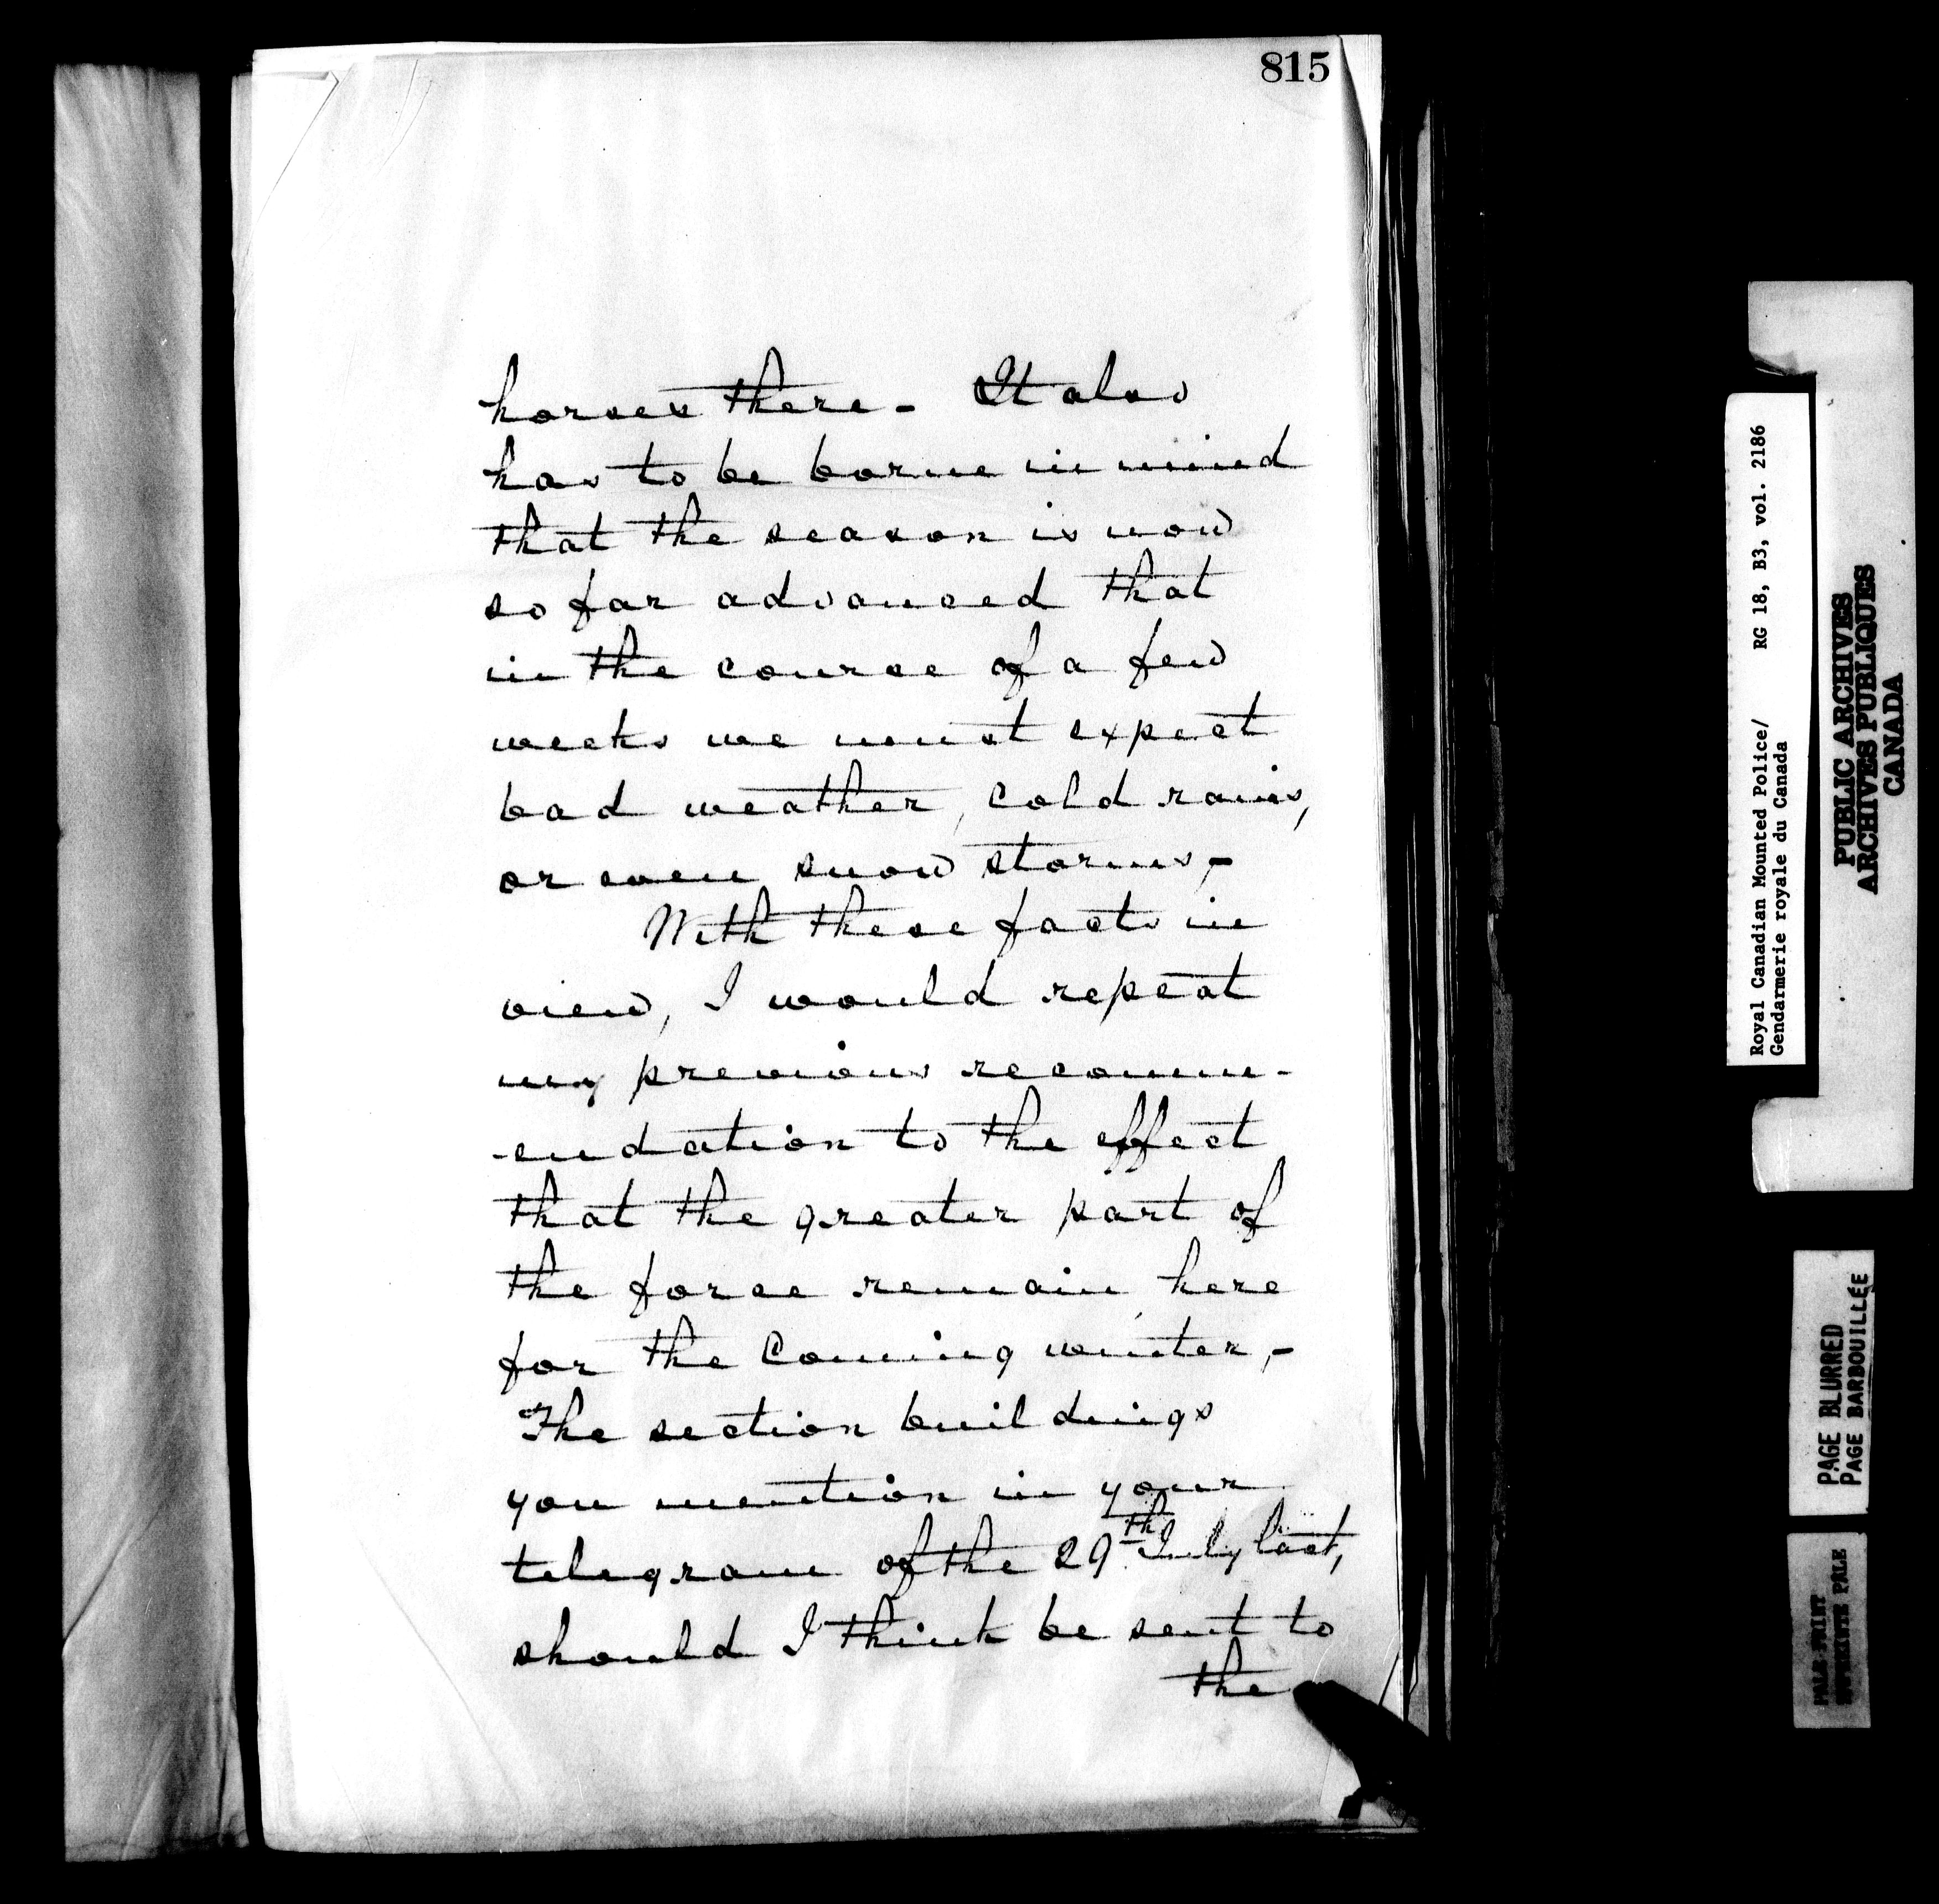 815
horses there - It also
has to be borne in mind
that the season is now
so far advanced that
in the course of a few
weeks we must expect
bad weather, cold rains,
or even snow storms,-
With these facts in
view, I would repeat
my previous recomm-
-endation to the effect
that the greater part of
the force remain here
for the coming winter,-
The section buildings
you mention in your
telegram of the 29th July last,
should I think be sent to
the
Royal Canadian Mounted Police/ RG 18, B3, vol. 2186
Gendarmerie royale du Canada
PUBLIC ARCHIVES
ARCHIVES PUBLIQUES
CANADA
PAGE BLURRED
PAGE BARBOUILLÉE
PALE PRINT
PALE